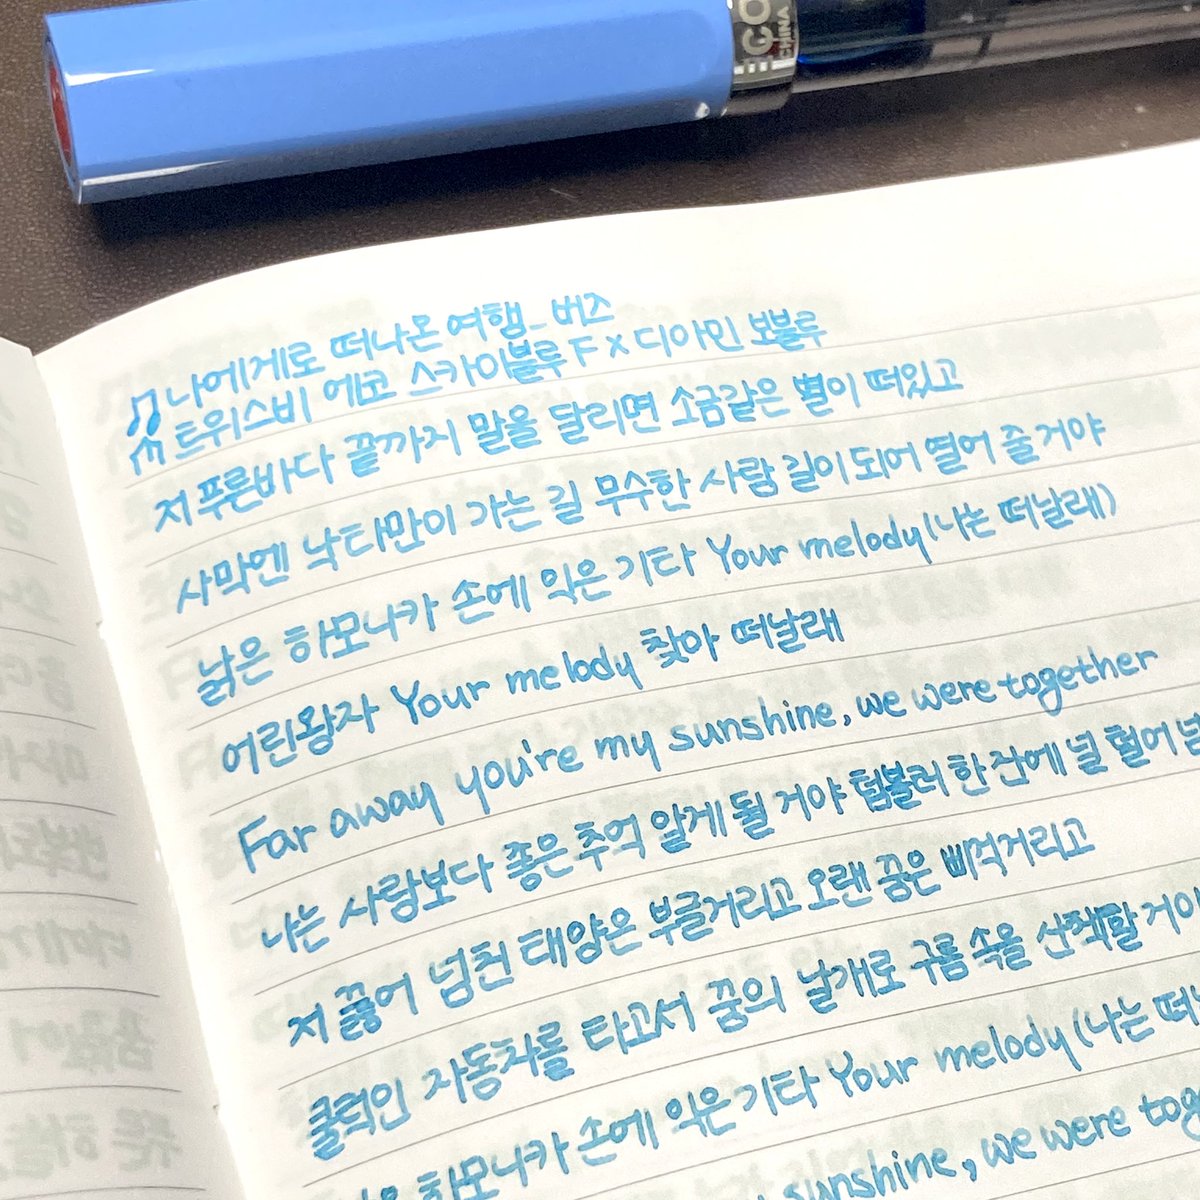 ECO
CHINA
♫ 나에게로 떠나온 여행_버즈
트위스비 에코 스카이블루 F x 디아민 보블루
저 푸른바다 끝까지 말을 달리면 소금같은 별이 떠있고
사막엔 낙타만이 가는 길 무수한 사람 길이 되어 열어 줄 거야
낡은 하모니카 손에 익은 기타 Your melody (나는 떠날래)
어린왕자 Your melody 찾아 떠날래
Far away you're my sunshine, we were together
나는 사랑보다 좋은 추억 알게 될 거야 텀블러 한 잔에 널 털어
저 끓어 넘친 태양은 부글거리고 오랜 꿈은 삐걱거리고
클럭인 자동차를 타고서 꿈의 날개로 구름 속을 산책할 거야
하모니카 손에 익은 기타 Your melody (나는
sunshine, we were